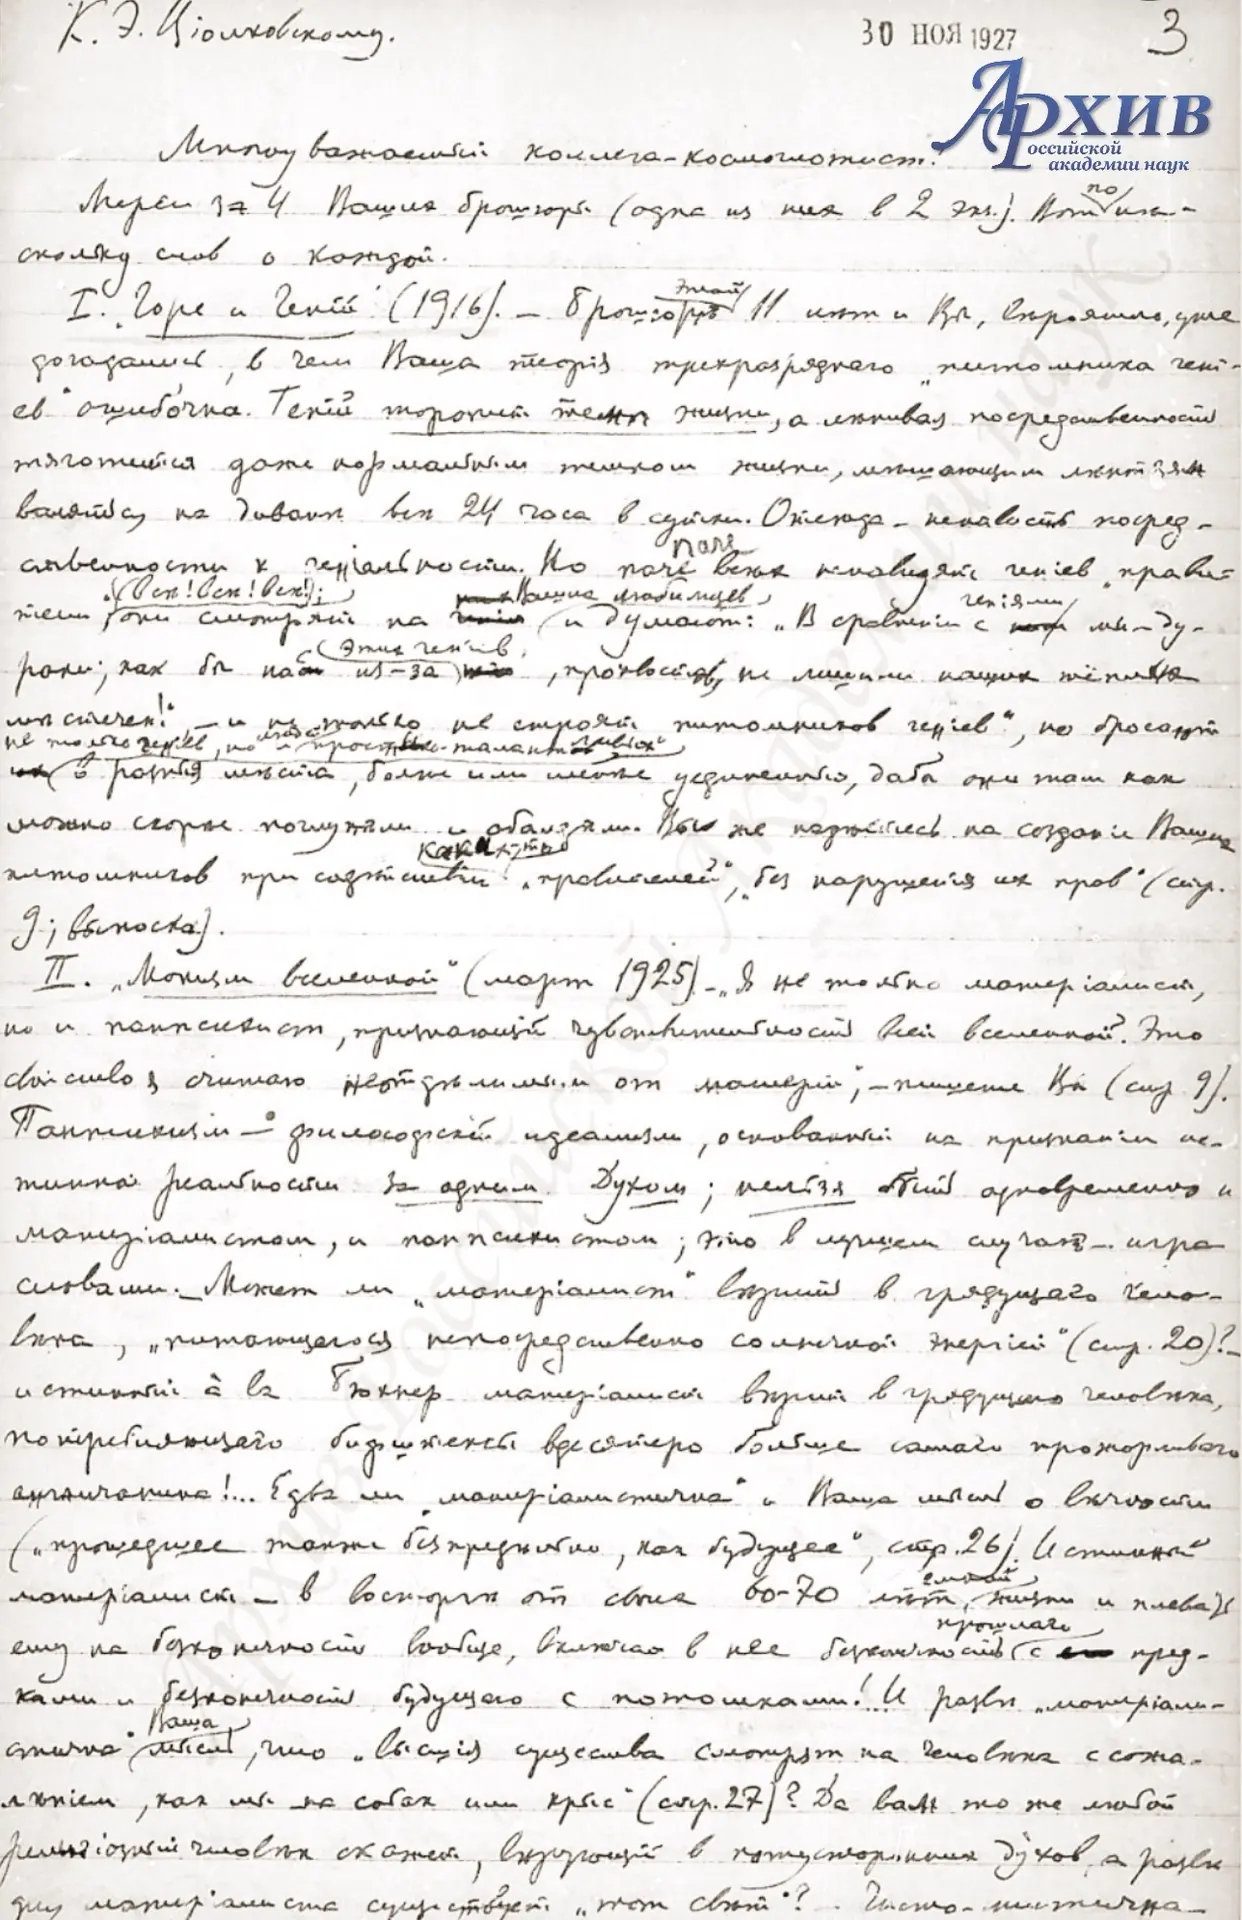 К. Э. Ціолковскому.
30 НОЯ 1927
3
Архив
Российской
академии наук
Многоуважаемый коллега-космологист!
Мерси за 4 Ваших брошюры (одна из них в 2 экз.). Вот по нѣ-
скольку слов о каждой.
I. „Горе и Геній“ (1916). – Брошюрѣ этой 11 лѣт и Вы, вѣроятно, уже
догадались, в чем Ваша теорія трехразряднаго „питомника гені-
ев“ ошибочна. Геній торопит темп жизни, а лѣнивая посредственность
тяготится даже нормальным темпом жизни, мѣшающим лѣнтяям
валяться на диванѣ всѣ 24 часа в сутки. Отсюда – ненависть посред-
ственности к геніальности. Но паче паче всѣх ненавидят геніев „прави-
тели“ (всѣ! всѣ! всѣ!); они смотрят на Ваших любимцев и думают: „В сравненіи с геніями мы – ду-
раки; как бы из-за этих геніев, проклятых, не лишили наших тёплых
мѣстечек!“ – и не только не строят „питомников геніев“, но бросают
не только геніев, но и просто талантливых в разныя мѣста, болѣе или менѣе уединенныя, дабы они там как
можно скорѣе поглупѣли и обалдѣли. Вы же надѣетесь на созданіе Ваших
питомников при содѣйствіи каких-то „правителей“, „без нарушенія их прав“ (стр.
9; выноска).
II. „Монизм вселенной“ (март 1925) – „Я не только матеріалист,
но и панпсихист, признающій чувствительность всей вселенной. Это
свойство я считаю неотдѣлимым от матеріи“, – пишете Вы (стр. 9).
Панпсихизм – философскій идеализм, основанный на признаніи ис-
тинной реальности за одним Духом; нельзя быть одновременно и
матеріалистом, и панпсихистом; это в лучшем случаѣ – игра
словами. – Может ли „матеріалист“ вѣрить в грядущаго чело-
вѣка, „питающагося непосредственно солнечной энергіей“ (стр. 20)? –
истинный à la Бюхнер матеріалист вѣрит в грядущаго человѣка,
потребляющаго бифштексы вдесятеро больше самаго прожорливаго
англичанина!... Едва ли „матеріалистична“ и Ваша мысль о вѣчности
(„прошедшее также безпредѣльно, как будущее“, стр. 26). Истинный
матеріалист – в восторгѣ от своих 60-70 лѣт земной жизни и плевать
ему на безконечность вообще, включая в нее безконечность прошлаго с пред-
ками и безконечность будущаго с потомками! И развѣ „матеріали-
стична“ Ваша мысль, что „высшія существа смотрят на человѣка с сожа-
лѣніем, как мы на собак или крыс“ (стр. 27)? Да вам то же любой
религіозный человѣк скажет, вѣрующій в потусторонних духов, а развѣ
для матеріалиста существует „тот свѣт“? Чисто-мистична –